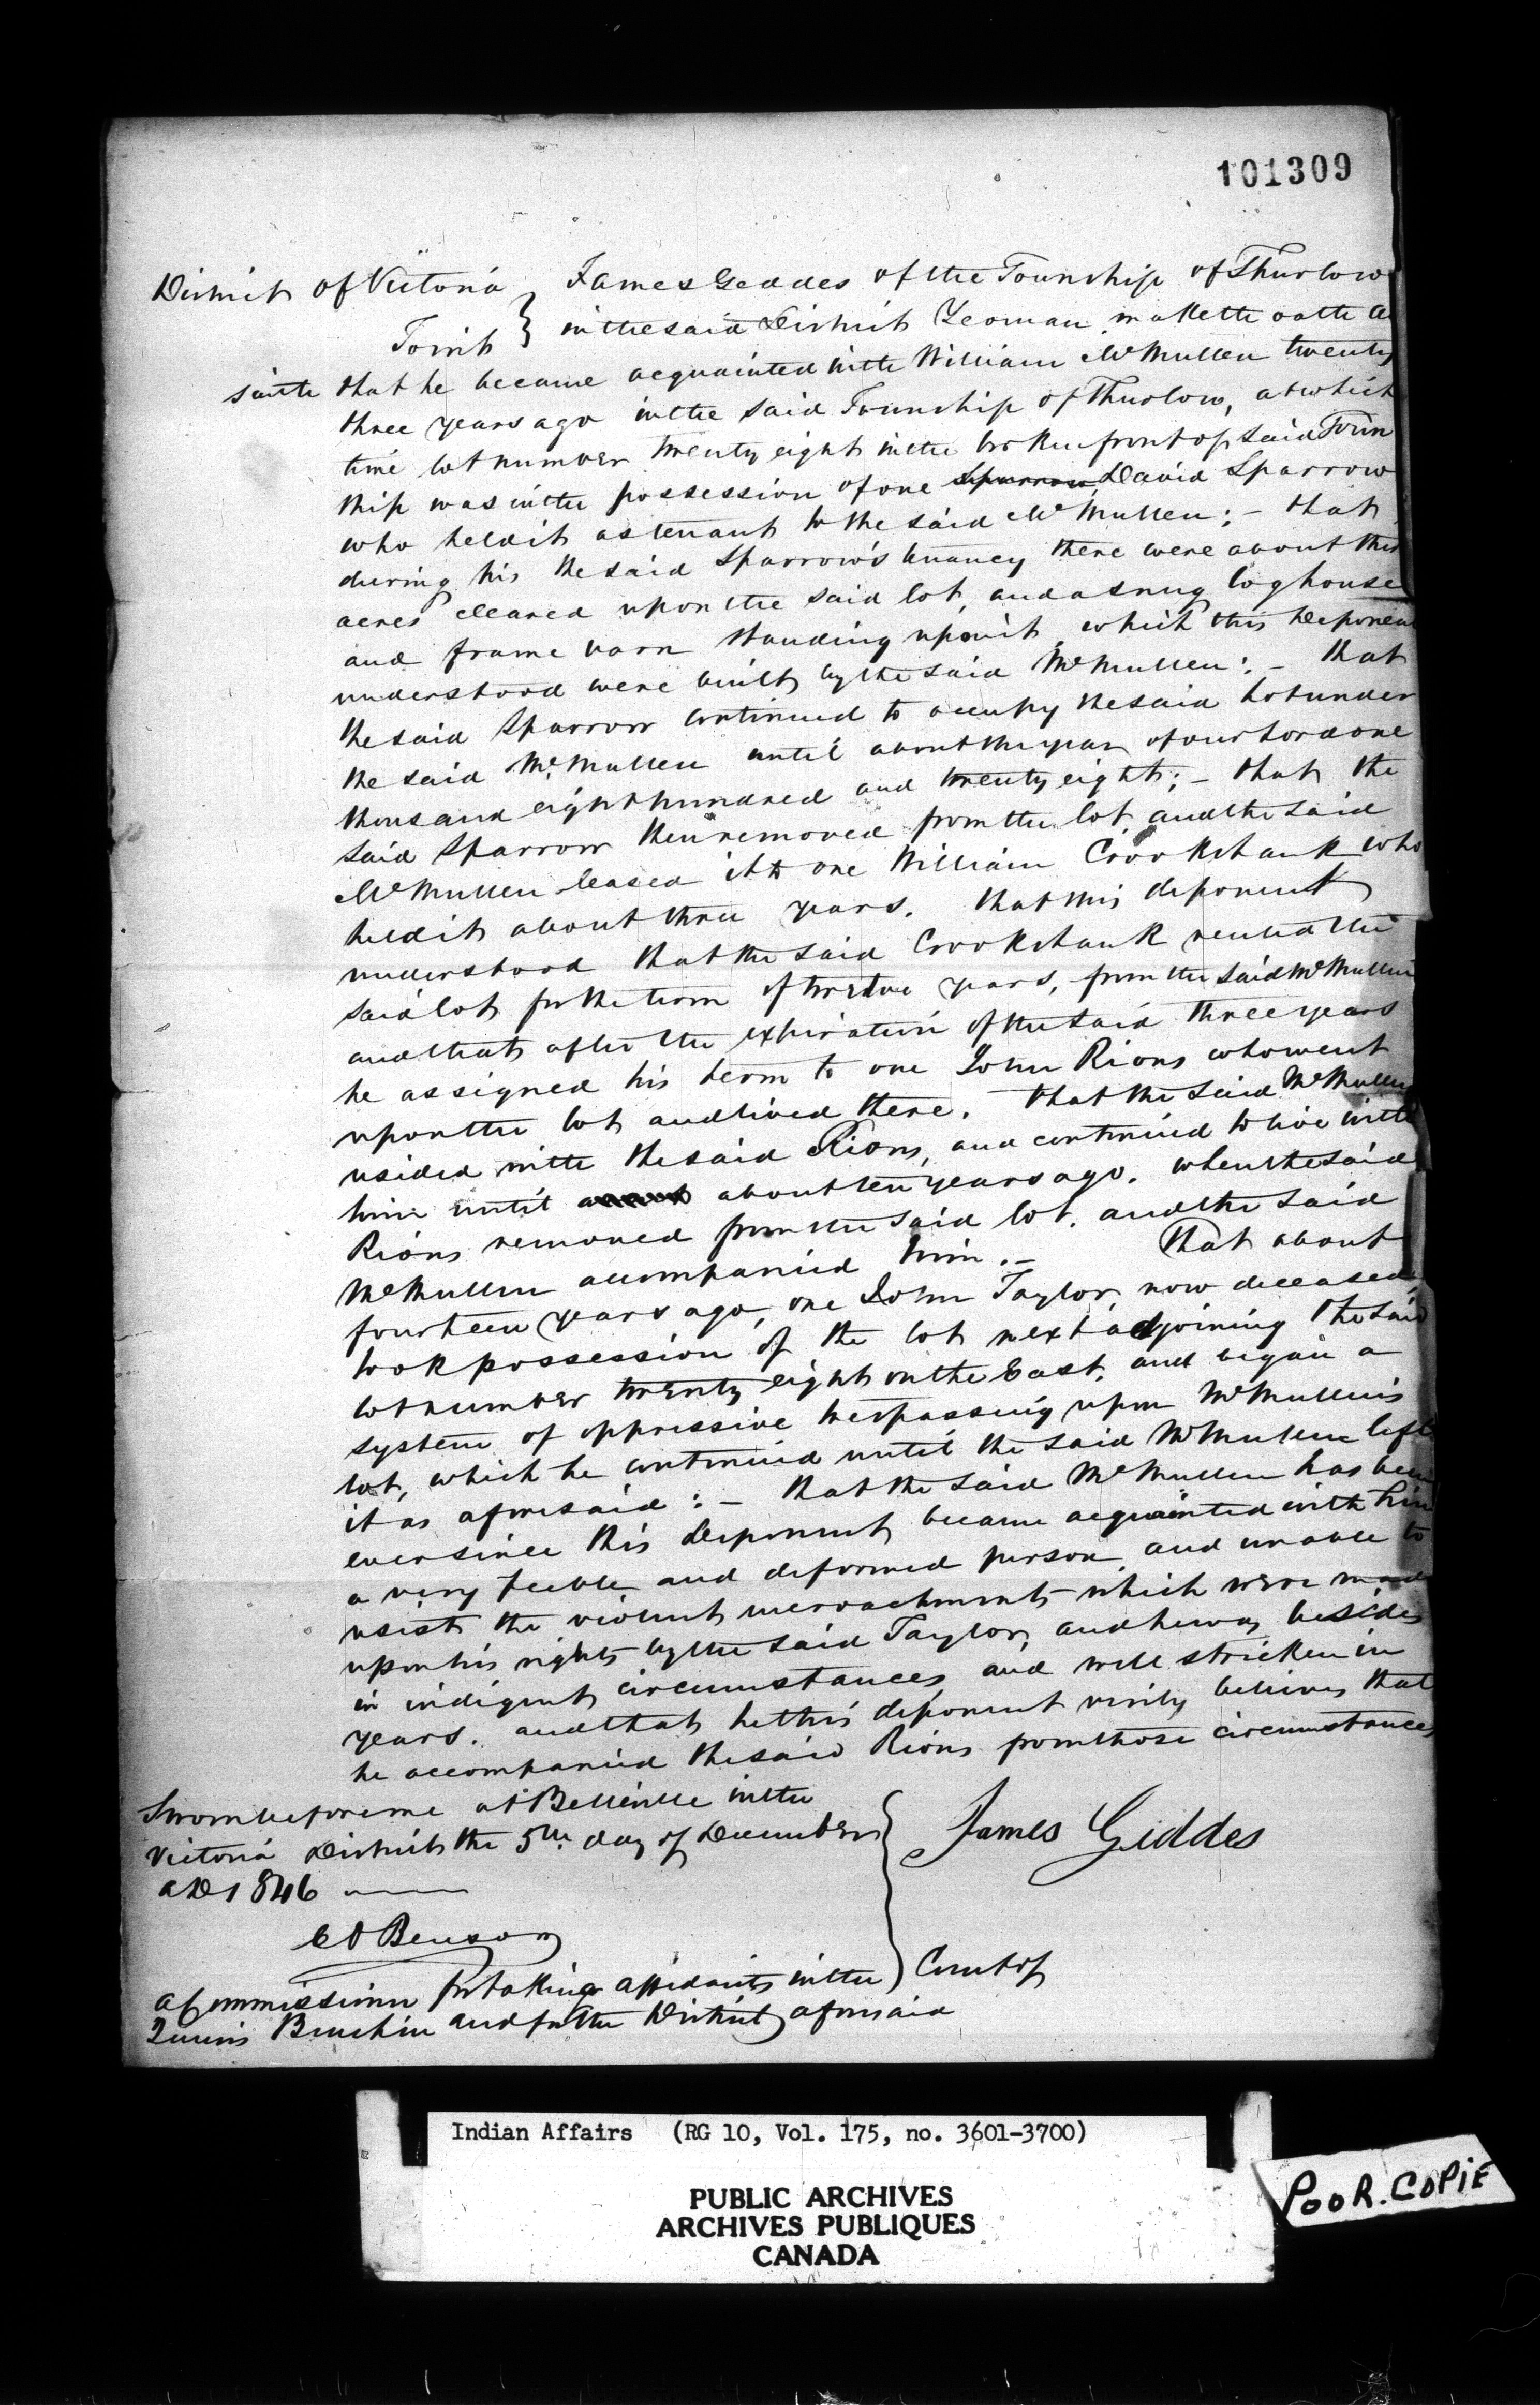 101309
District of Victoria } James Geddes of the Township of Thurlow
To wit } in the said District Yeoman, maketh oath a
saith that he became acquainted with William McMullen twenty
three years ago in the said Township of Thurlow, at which
time lot number twenty eight in the broken front of said Town
ship was in the possession of one Sparrow, David Sparrow
who held it as tenant to the said McMullen; – that
during his the said Sparrow's tenancy there were about thi
acres cleared upon the said lot, and a snug log house
and frame barn standing upon it, which this Deponen
understood were built by the said McMullen: – that
the said Sparrow continued to occupy the said lot under
the said McMullen until about the year of our Lord one
thousand eight hundred and twenty eight; – that the
said Sparrow then removed from the lot, and the said
McMullen leased it to one William Crookshank who
held it about three years. that this deponent
understood that the said Crookshank rented the
said lot for the term of twelve years, from the said McMullen
and that after the expiration of the said three years
he assigned his term to one John Rions who went
upon the lot and lived there. That the said McMullen
resided with the said Rions, and continued to live with
him until about ten years ago. when the said
Rions removed from the said lot. and the said
McMullen accompanied him. – That about
fourteen years ago, one John Taylor, now deceased,
took possession of the lot next adjoining the said
lot number twenty eight on the East, and began a
system of oppressive trespassing upon McMullen's
lot, which he continued until the said McMullen left
it as aforesaid: – that the said McMullen has been
ever since this Deponent became acquainted with him
a very feeble and deformed person, and unable to
resist the violent encroachments which were made
upon his rights by the said Taylor, and he was besides
in indigent circumstances, and well stricken in
years. and that he this deponent verily believes that
he accompanied the said Rions from those circumstances
Sworn before me at Belleville in the
Victoria District the 5th day of December
AD 1846
James Geddes
C O Benson
a Commissioner for taking affidavits in the Court of
Queens Bench in and for the District aforesaid
Indian Affairs (RG 10, Vol. 175, no. 3601-3700)
PUBLIC ARCHIVES
ARCHIVES PUBLIQUES
CANADA
POOR. COPIE